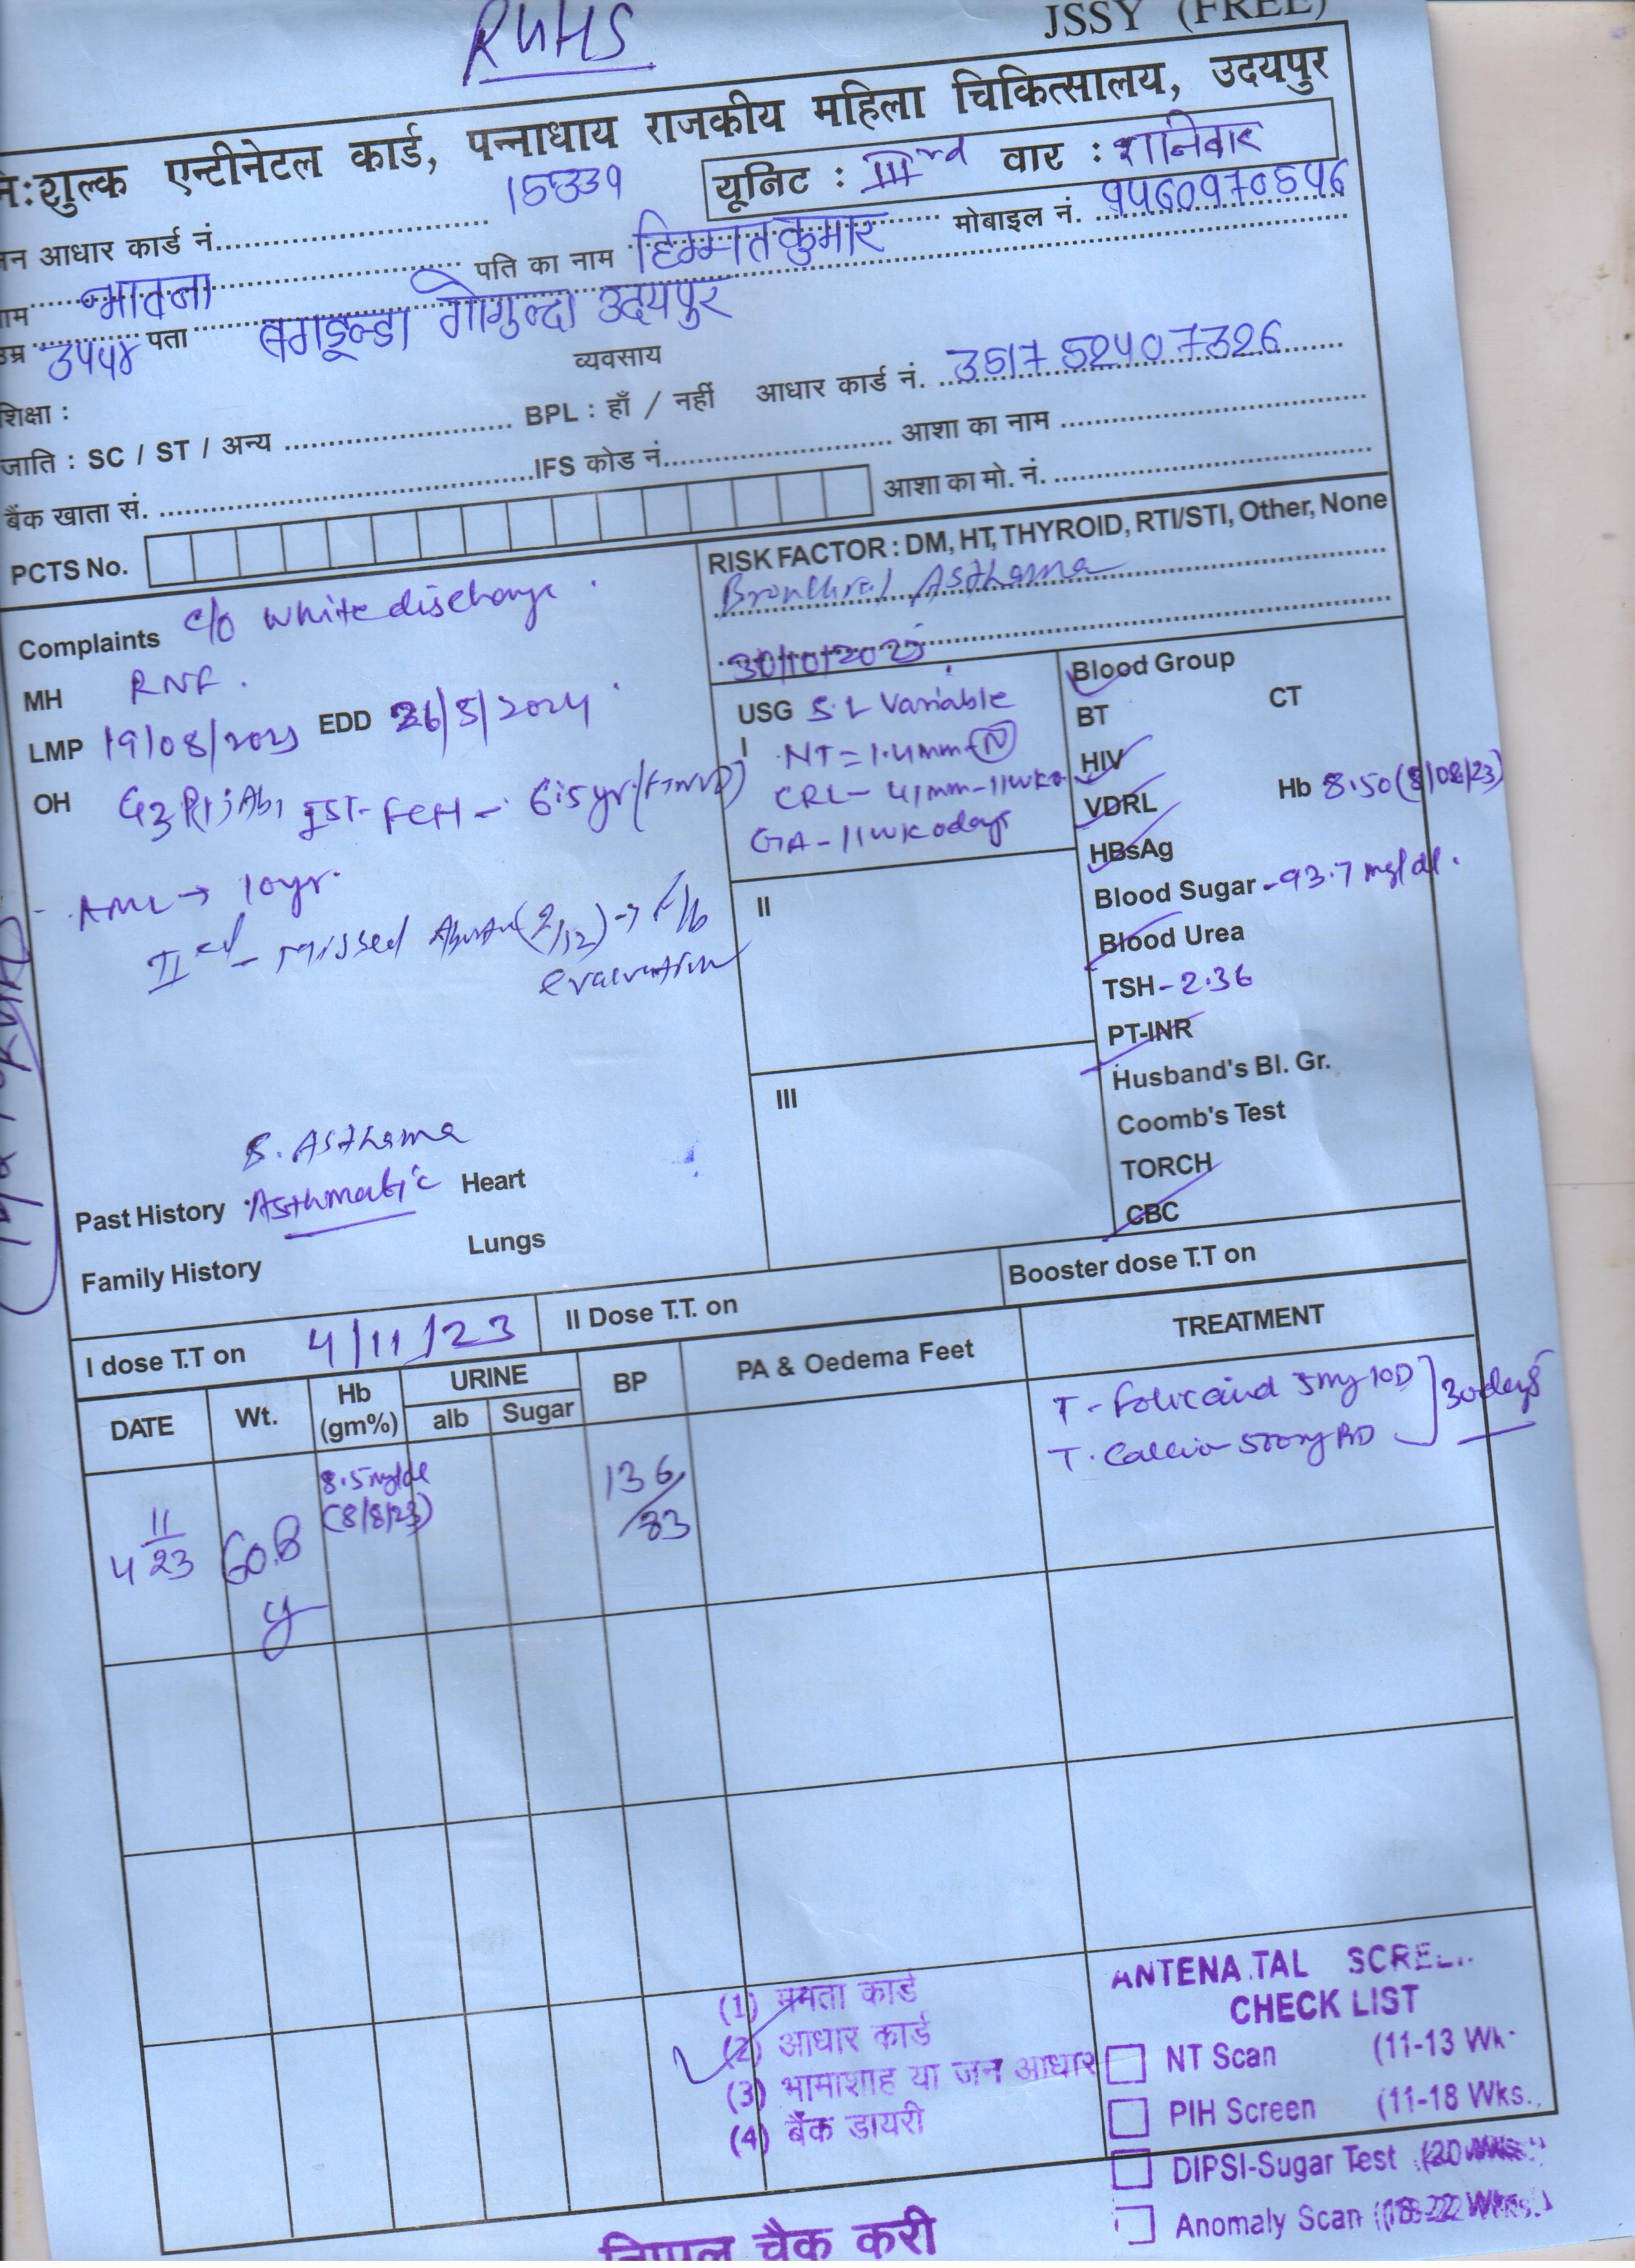 RUHS
JSSY (FREE)
नि:शुल्क एन्टीनेटल कार्ड, पन्नाधाय राजकीय महिला चिकित्सालय, उदयपुर
15339
यूनिट : IIIrd वार : शनिवार
जन आधार कार्ड नं.
नाम भावना पति का नाम हिम्मतकुमार मोबाइल नं. 9460970546
उम्र 34yr पता बगडून्डा गोगुन्दा उदयपुर
शिक्षा : व्यवसाय
जाति : SC / ST / अन्य BPL : हाँ / नहीं आधार कार्ड नं. 3517 5240 7326
बैंक खाता सं. IFS कोड नं. आशा का नाम
PCTS No. आशा का मो. नं.
RISK FACTOR : DM, HT, THYROID, RTI/STI, Other, None
Bronchial Asthama
Complaints c/o white discharge
MH RNF.
LMP 19/08/2023 EDD 26/5/2024
OH G3 P1; Ab1 Ist- FCH - 6.5yr (FTNVD)
AML → 10yr.
IInd - Missed (2/12) → F/b
evacuation
B. Asthama
Past History Asthmatic Heart
Family History Lungs
30/10/2023
USG S.L Variable
I NT = 1.4mm (N)
CRL - 41mm - 11wko
GA - 11wk0days
II
III
Blood Group
BT CT
HIV
VDRL Hb 8.50 (8/08/23)
HBsAg
Blood Sugar - 93.7 mg/dl.
Blood Urea
TSH - 2.36
PT-INR
Husband's Bl. Gr.
Coomb's Test
TORCH
CBC
I dose T.T on 4/11/23 II Dose T.T. on Booster dose T.T on
DATE Wt. Hb (gm%) URINE alb Sugar BP PA & Oedema Feet TREATMENT
4 11/23 60.8 8.5mg/dl (8/8/23) 136/83
T- Folicacid 5mg 1OD
T. Calcium 500mg BD
30days
(1) ममता कार्ड
(2) आधार कार्ड
(3) भामाशाह या जन आधार
(4) बैंक डायरी
ANTENATAL
CHECK LIST
NT Scan (11-13 Wk
PIH Screen (11-18 Wks.
DIPSI-Sugar Test (20 Wks.
Anomaly Scan (18-22 Wks.)
चैक करी